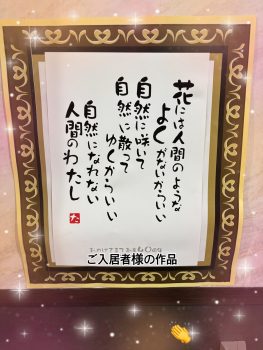 花には人間のような
よくがないからいい
自然に咲いて
自然に散って
ゆくからいい
自然になれない
人間のわたし
た
ご入居者様の作品